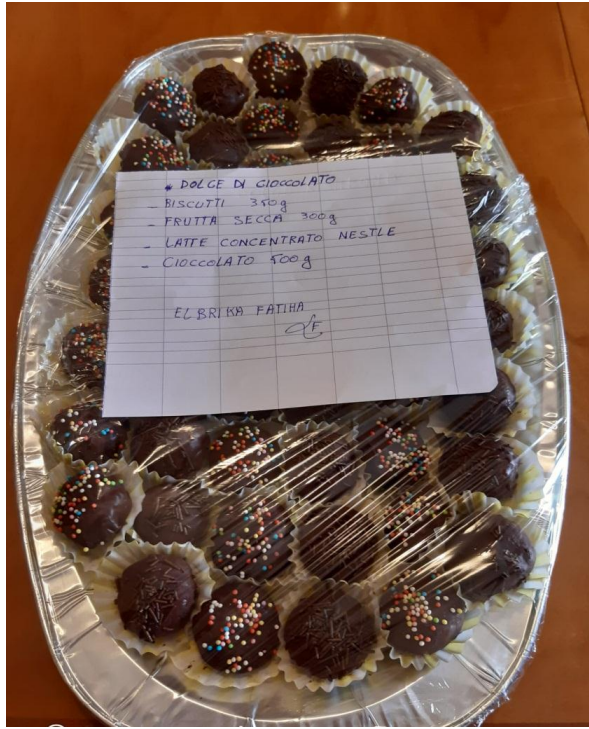 * DOLCE DI CIOCCOLATO
- BISCUTTI 350g
- FRUTTA SECCA 300g
- LATTE CONCENTRATO NESTLE
- CIOCCOLATO 500g
EL BRIKA FATIHA